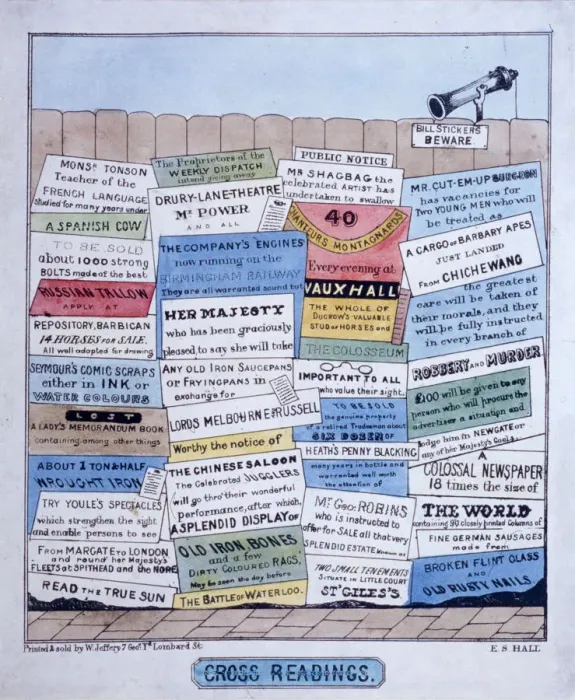 BILL STICKERS
BEWARE
MONSR. TONSON
Teacher of the
FRENCH LANGUAGE
Studied for many years under
A SPANISH COW
TO BE SOLD
about 1000 strong
BOLTS made of the best
RUSSIAN TALLOW
APPLY AT
REPOSITORY, BARBICAN
14 HORSES for SALE.
All well adapted for drawing
SEYMOUR'S COMIC SCRAPS
either in INK or
WATER COLOURS
LOST
A LADY'S MEMORANDUM BOOK
containing among other things
ABOUT 1 TON & HALF
WROUGHT IRON
TRY YOULE'S SPECTACLES
which strengthen the sight
and enable persons to see
FROM MARGATE TO LONDON
and round her Majesty's
FLEETS at SPITHEAD and the NORE
READ THE TRUE SUN
The Proprietors of the
WEEKLY DISPATCH
intend giving away
DRURY-LANE-THEATRE
MR. POWER
AND ALL
THE COMPANY'S ENGINES
now running on the
BIRMINGHAM RAILWAY
They are all warranted sound but
HER MAJESTY
who has been graciously
pleased, to say she will take
ANY OLD IRON SAUCEPANS
or FRYINGPANS in
exchange for
LORDS MELBOURNE & RUSSELL
Worthy the notice of
THE CHINESE SALOON
The Celebrated JUGGLERS
will go thro' their wonderful
performance, after which,
A SPLENDID DISPLAY OF
OLD IRON BONES
and a few
DIRTY COLOURED RAGS,
May be seen the day before
THE BATTLE OF WATERLOO.
PUBLIC NOTICE
MR SHAGBAG the
celebrated ARTIST has
undertaken to swallow
40
CHANTEURS MONTAGNARDS
Every evening at
VAUXHALL
THE WHOLE OF
DUCROW'S VALUABLE
STUD of HORSES and
THE COLOSSEUM
IMPORTANT TO ALL
who value their sight.
TO BE SOLD
the genuine property
of a retired Tradesman about
SIX DOZEN OF
HEATH'S PENNY BLACKING
many years in bottle and
warranted well worth
the attention of
MR. GEO: ROBINS
who is instructed to
offer for SALE all that very
SPLENDID ESTATE known as
TWO SMALL TENEMENTS
SITUATE IN LITTLE COURT
ST. GILES'S
MR. CUT-EM-UP SURGEON
has vacancies for
Two YOUNG MEN who will
be treated as
A CARGO OF BARBARY APES
JUST LANDED
FROM CHICHEWANG
the greatest
care will be taken of
their morals, and they
will be fully instructed
in every branch of
ROBBERY AND MURDER
£100 will be given to any
person who will procure the
advertiser a situation and
lodge him in NEWGATE or
any of her Majesty's Goals.
A
COLOSSAL NEWSPAPER
18 times the size of
THE WORLD
containing 90 closely printed Columns of
FINE GERMAN SAUSAGES
made from
BROKEN FLINT GLASS
AND
OLD RUSTY NAILS.
Printed & sold by W. Jeffery 7 Geo: Yd. Lombard St:
E. S. HALL
CROSS READINGS.